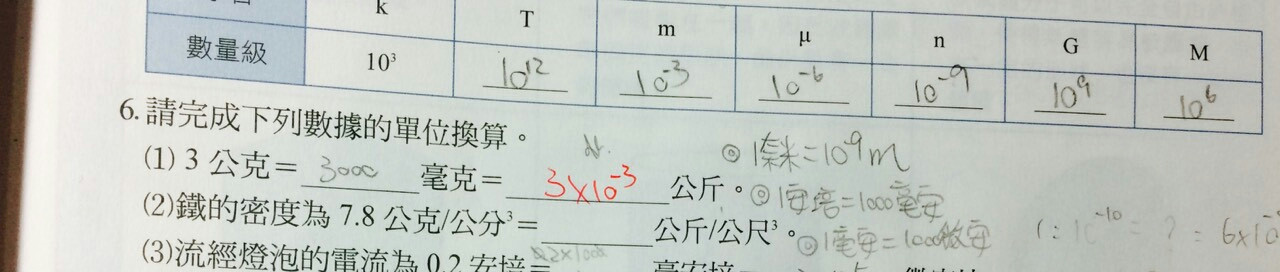 k T m μ n G M
數量級 10³ 10¹² 10⁻³ 10⁻⁶ 10⁻⁹ 10⁹ 10⁶
6. 請完成下列數據的單位換算。
◎1奈米=10⁻⁹m
(1) 3 公克=3000毫克=3×10⁻³公斤。
◎1安培=1000毫安
(2)鐵的密度為 7.8 公克/公分³=______公斤/公尺³。
◎1毫安=1000微安
(3)流經燈泡的電流為 0.2 安培=0.2×1000